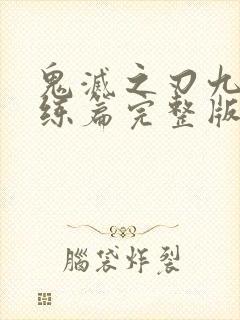 鬼滅之刃九
练篇完整版
腦袋炸裂